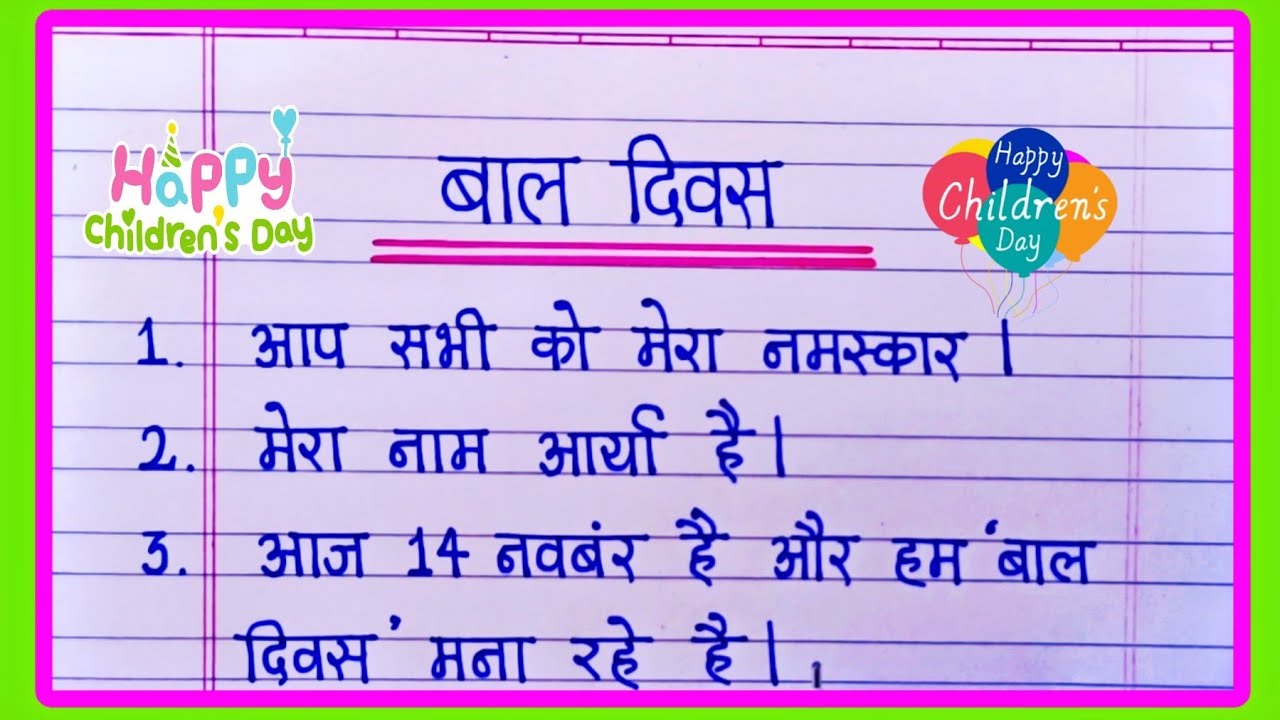 Happy
Children's Day
Happy
Children's
Day
बाल दिवस
1. आप सभी को मेरा नमस्कार।
2. मेरा नाम आर्या है।
3. आज 14 नवबंर है और हम 'बाल
दिवस' मना रहे है।